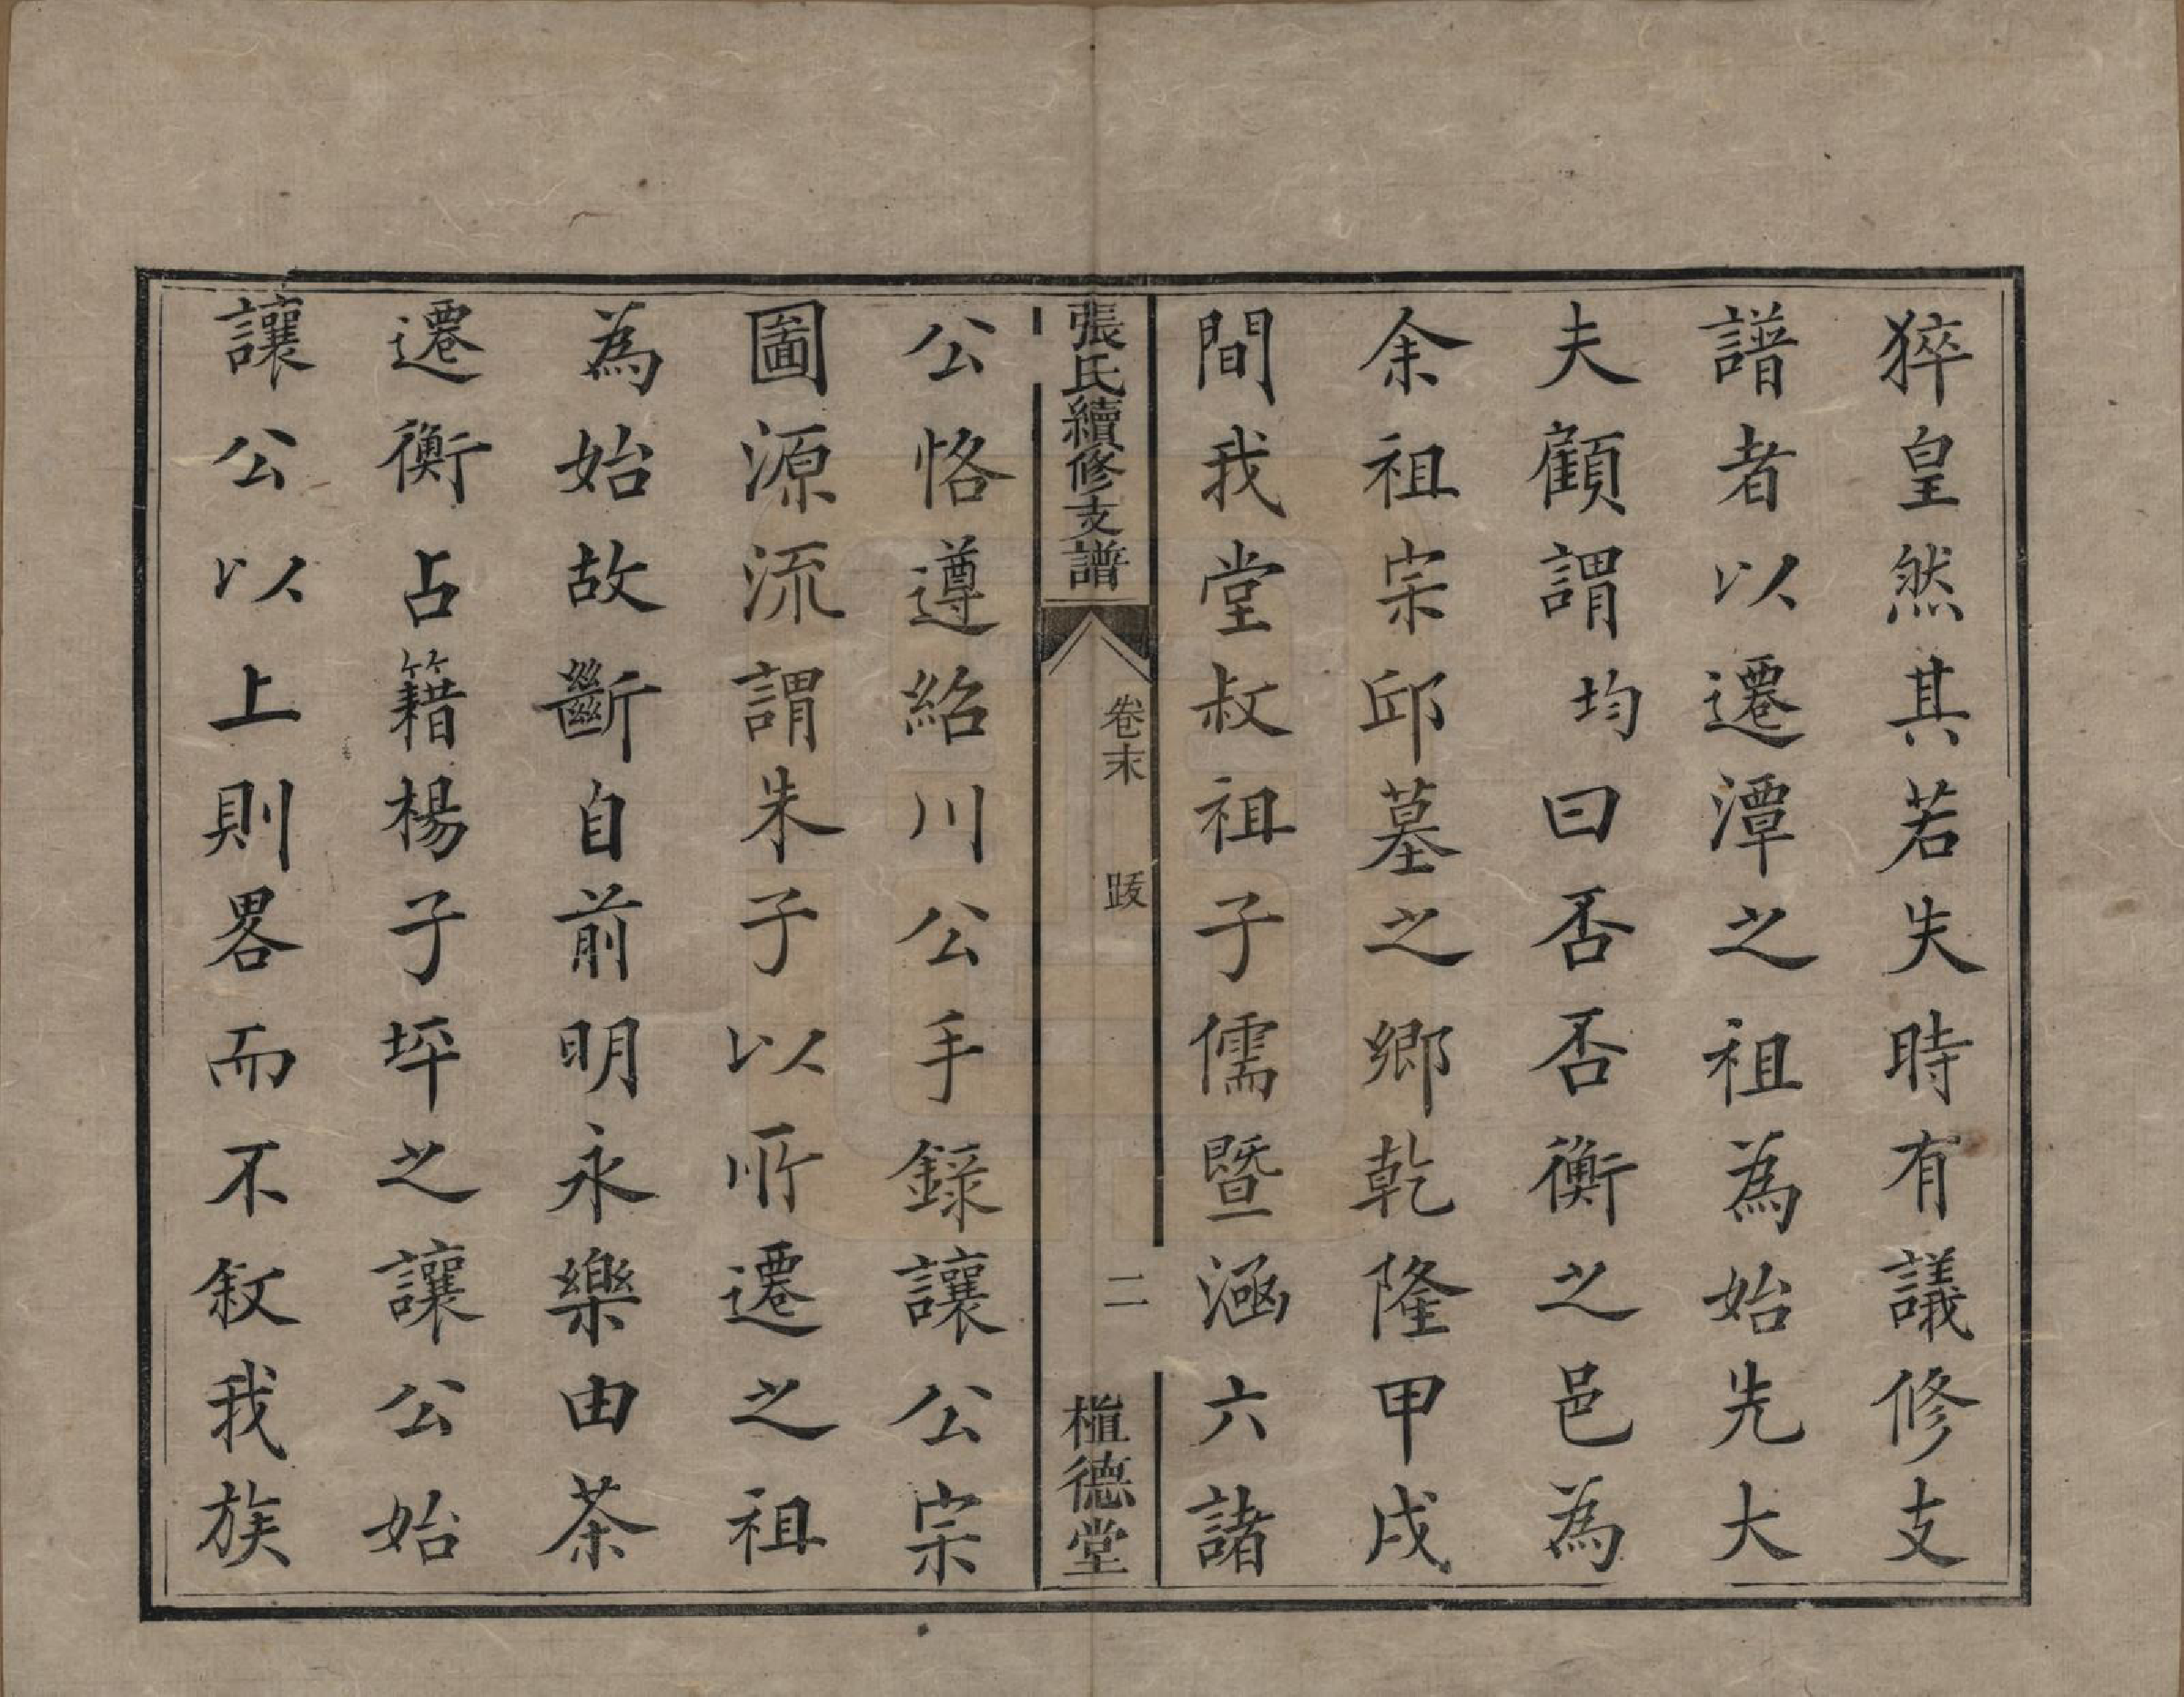 猝皇然其若失時有議修支
譜者以遷潭之祖為始先大
夫顧謂均曰否否衡之邑為
余祖宗邱墓之鄉乾隆甲戌
間我堂叔祖子儒暨涵六諸
張氏續修支譜
卷末
跋
二
植德堂
公恪遵紹川公手錄讓公宗
圖源流謂朱子以所遷之祖
為始故斷自前明永樂由茶
遷衡占籍楊子坪之讓公始
讓公以上則畧而不敘我族